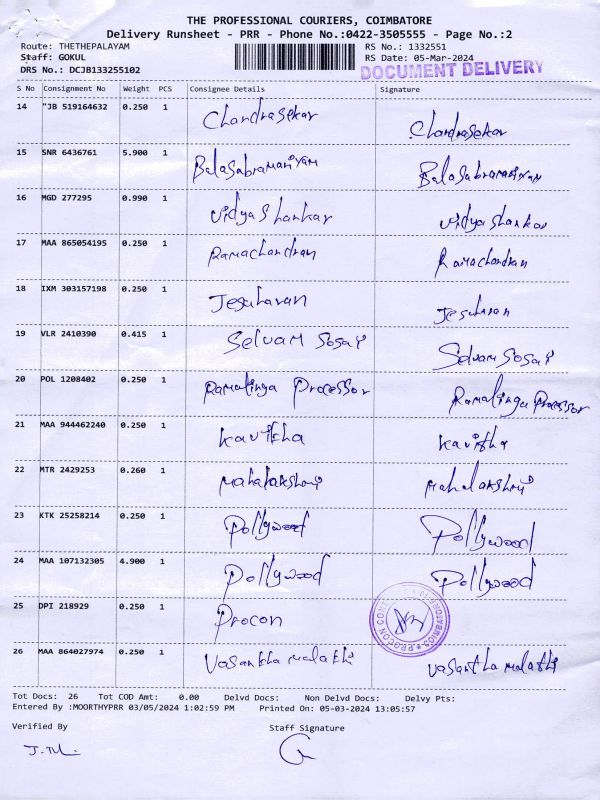 THE PROFESSIONAL COURIERS, COIMBATORE
Delivery Runsheet - PRR - Phone No.:0422-3505555 - Page No.:2
Route: THETHEPALAYAM RS No.: 1332551
Staff: GOKUL RS Date: 05-Mar-2024
DRS No.: DCJB133255102 DOCUMENT DELIVERY
S No Consignment No Weight PCS Consignee Details Signature
14 "JB 519164632 0.250 1 Chandrasekar Chandrasekar
15 SNR 6436761 5.900 1 Balasabramaniyam Balasabramaniyam
16 MGD 277295 0.990 1 Vidya Shankar Vidya Shankar
17 MAA 865054195 0.250 1 Ramachandran Ramachandran
18 IXM 303157198 0.250 1
19 VLR 2410390 0.415 1 Selvam Sosai Selvam Sosai
20 POL 1208402 0.250 1 Ramalinga Processor Ramalinga Processor
21 MAA 944462240 0.250 1 Kavitha Kavitha
22 MTR 2429253 0.260 1 Mahalakshmi Mahalakshmi
23 KTK 25258214 0.250 1 Pollywood Pollywood
24 MAA 107132305 4.900 1 Pollywood Pollywood
25 DPI 218929 0.250 1 Procon
26 MAA 864027974 0.250 1 Vasantha Malathi Vasantha Malathi
Tot Docs: 26 Tot COD Amt: 0.00 Delvd Docs: Non Delvd Docs: Delvy Pts:
Entered By :MOORTHYPRR 03/05/2024 1:02:59 PM Printed On: 05-03-2024 13:05:57
Verified By Staff Signature